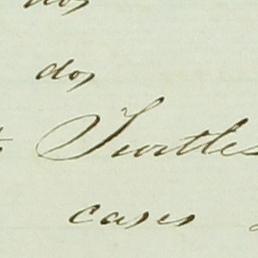 do,
do,
Turtles
cases